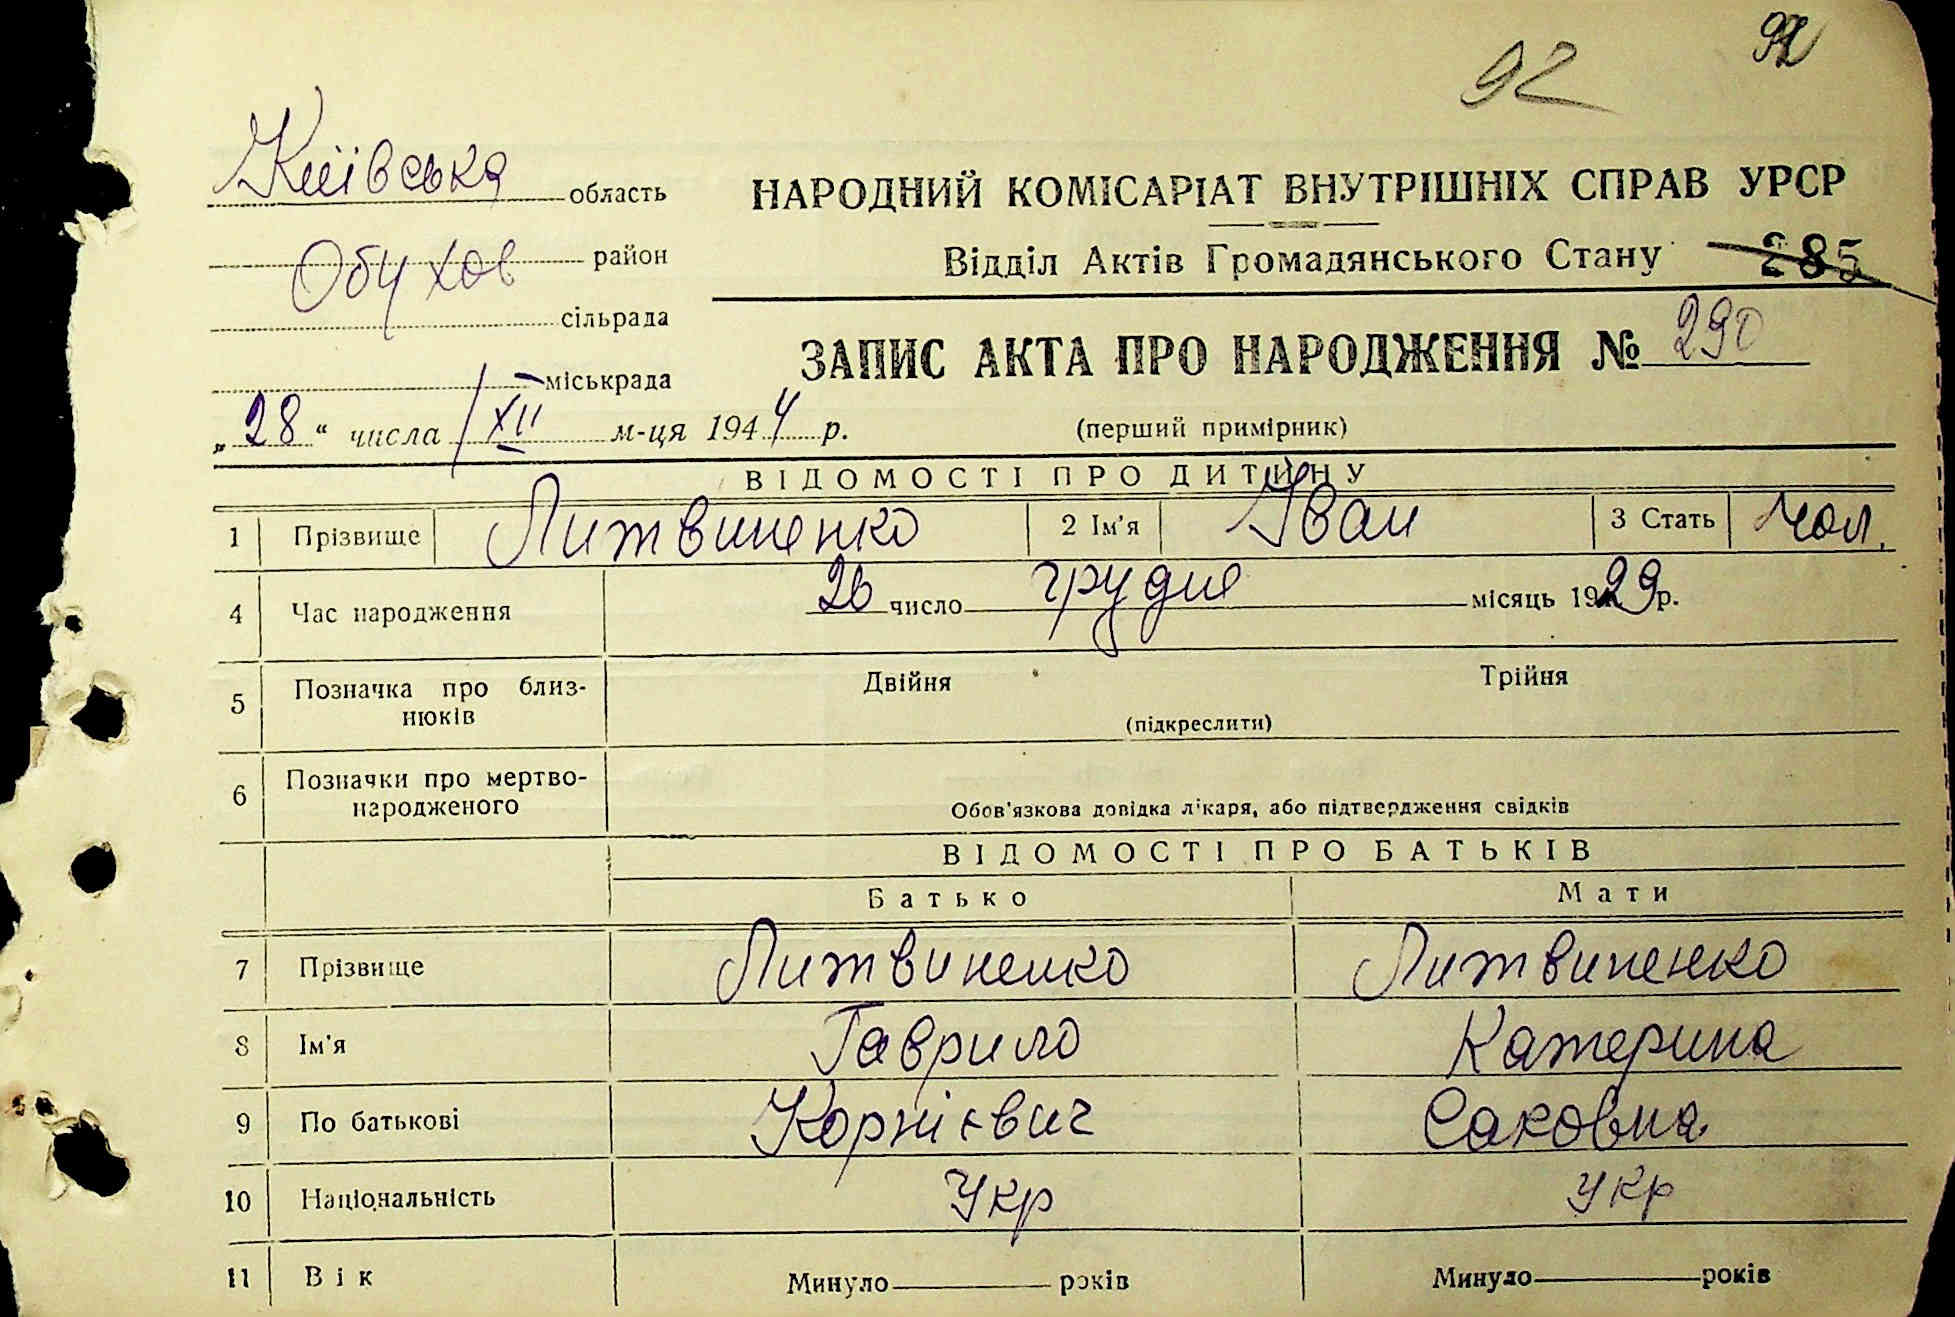 92 92
Київська область
НАРОДНИЙ КОМІСАРІАТ ВНУТРІШНІХ СПРАВ УРСР
Обухов район
Відділ Актів Громадянського Стану 285
сільрада
ЗАПИС АКТА ПРО НАРОДЖЕННЯ № 290
міськрада
„28“ числа XII м-ця 1944 р. (перший примірник)
ВІДОМОСТІ ПРО ДИТИНУ
1 Прізвище Литвиненко 2 Ім'я Іван 3 Стать чол.
4 Час народження 26 число грудня місяць 1929 р.
5 Позначка про близ- Двійня Трійня
нюків (підкреслити)
6 Позначки про мертво-
народженого Обов'язкова довідка лікаря, або підтвердження свідків
ВІДОМОСТІ ПРО БАТЬКІВ
Батько Мати
7 Прізвище Литвиненко Литвиненко
8 Ім'я Гаврило Катерина
9 По батькові Корнієвич Саковна
10 Національність Укр Укр
11 Вік Минуло років Минуло років